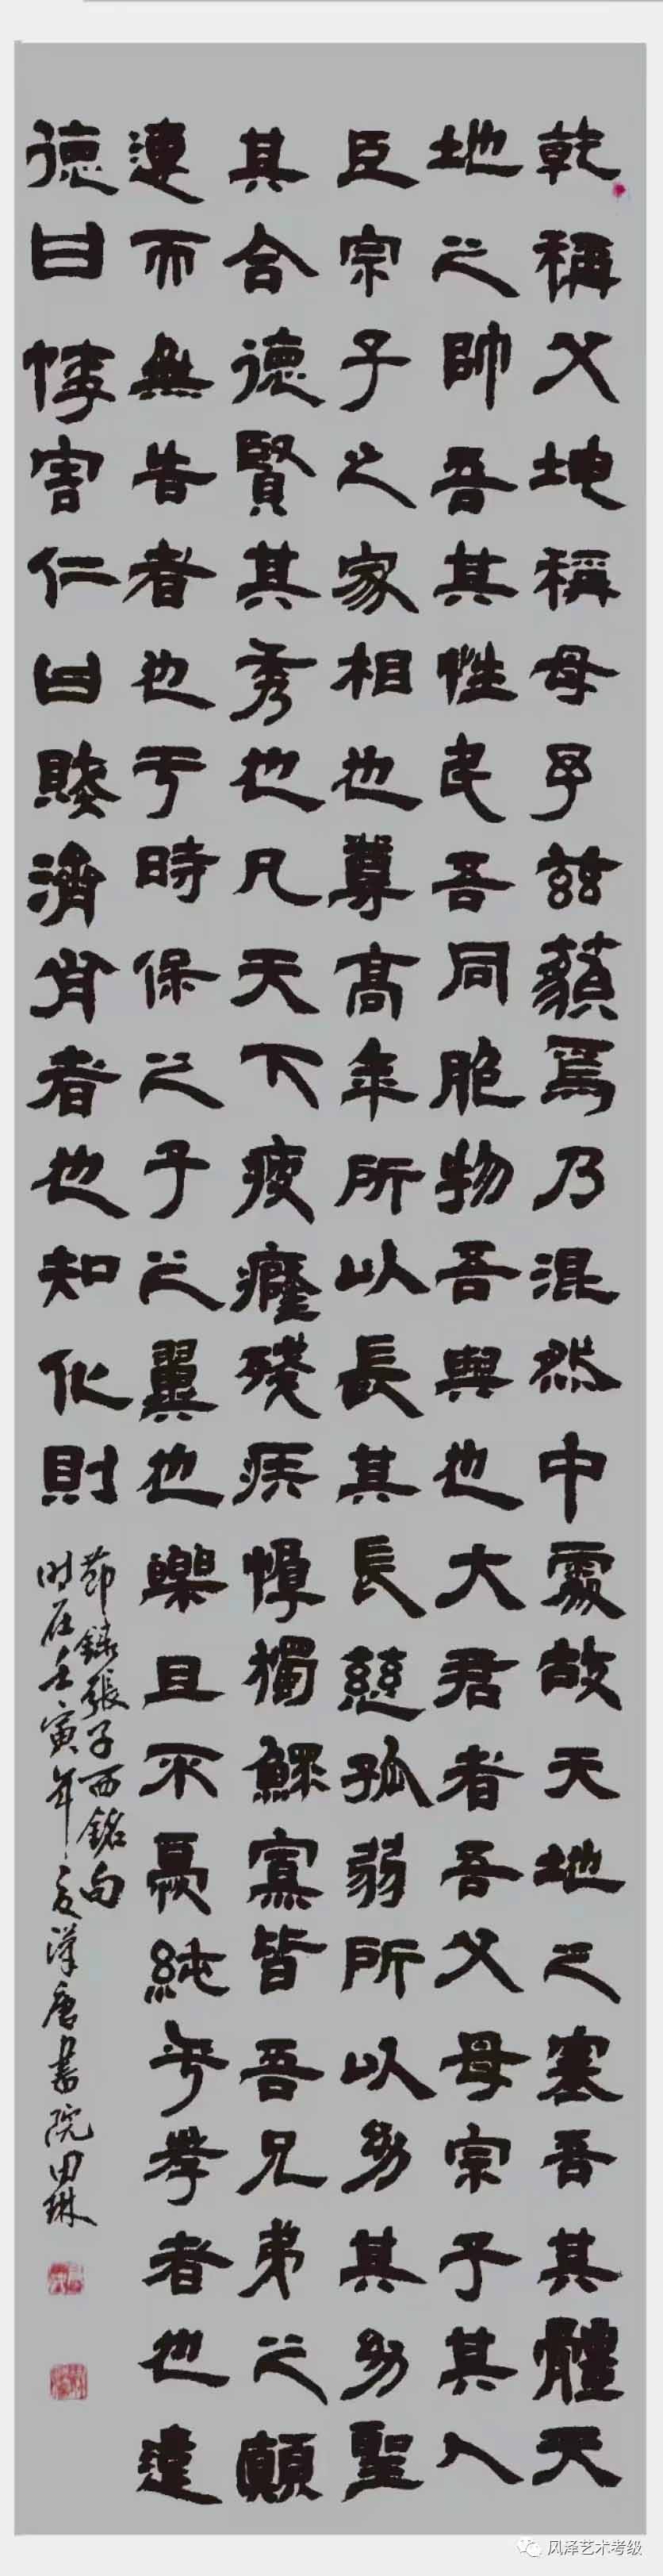 乾稱父坤稱母予茲藐焉乃混然中處故天地之塞吾其體天
地之帥吾其性民吾同胞物吾與也大君者吾父母宗子其人
臣宗子之家相也尊高年所以長其長慈孤弱所以幼其幼聖
其合德賢其秀也凡天下疲癃殘疾惸獨鰥寡皆吾兄弟之顛
連而無告者也于時保之子之翼也樂且不憂純乎孝者也違
德曰悖害仁曰賊濟肖者也知化則
節錄張子西銘句
時在壬寅年夏漢唐書院田琳
风泽艺术考级